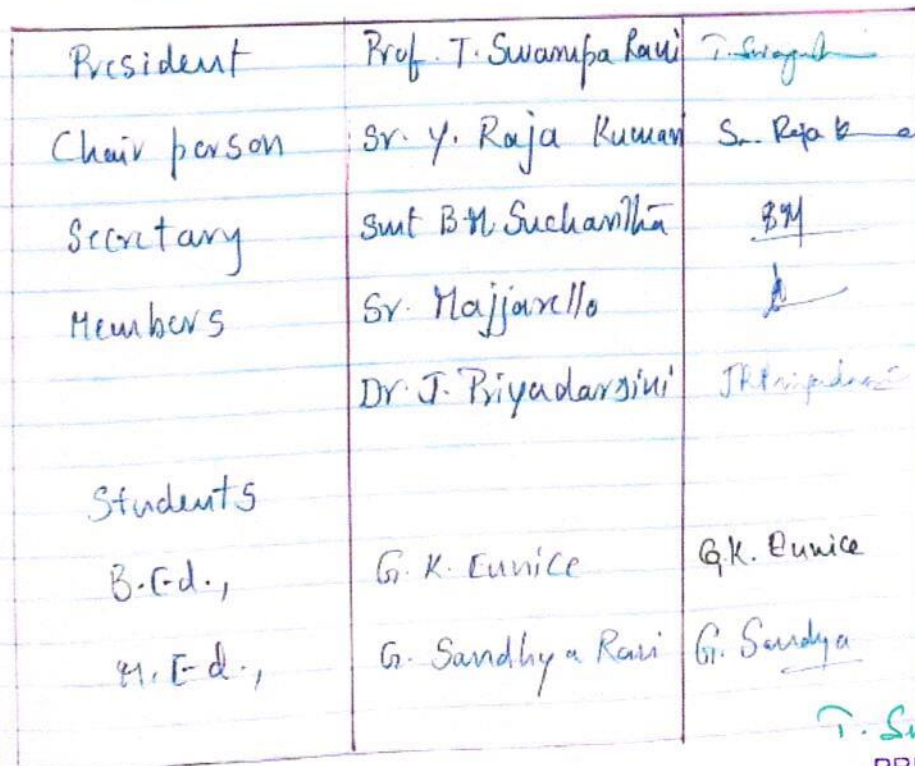 President Prof. T. Swarupa Rani
Chair person Sr. Y. Raja Kumari S. Raja
Secretary Smt B.M. Sucharitha BM
Members Sr. Majjarello
Dr. J. Priyadarsini
Students
B.Ed., G.K. Eunice G.K. Eunice
M.Ed., G. Sandhya Rani G. Sandya
T.